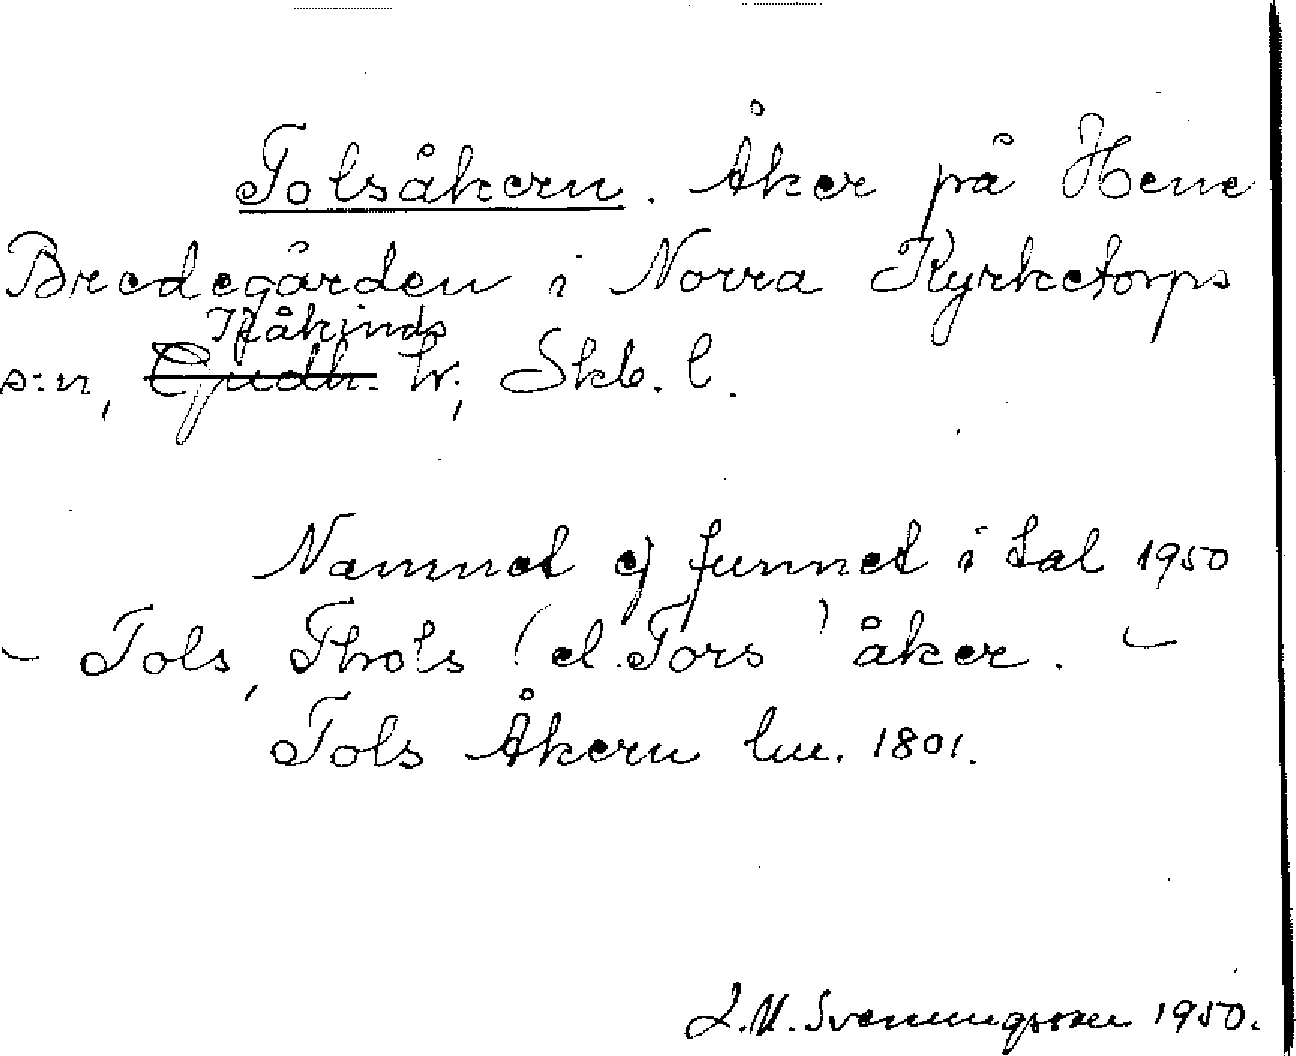 Tolsåkern. Åker på Hene
Bredegården i Norra Kyrketorps
Kåkinds
s:n, Gudh. hr., Skb. l.
Namnet ej funnet i tal 1950
– Tols, Thols (el. Tors) åker. –
Tols Åkern lm. 1801.
L.M. Svenungsson 1950.